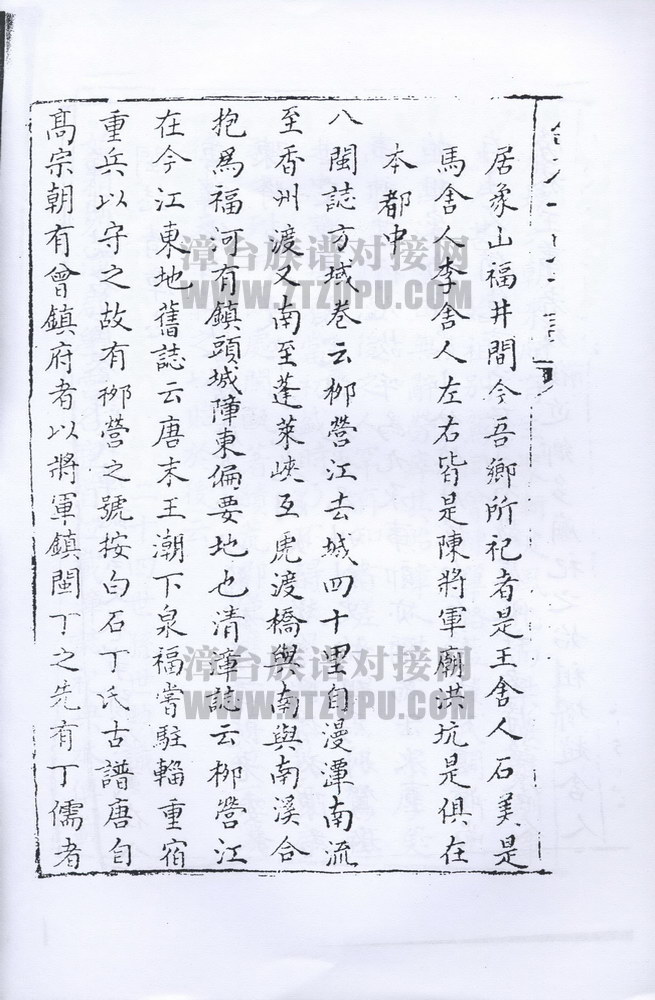 居象山福井間今吾鄉所祀者是王舍人石美是
馬舍人李舍人左右皆是陳將軍廟洪坑是俱在
本都中
八閩誌方域卷云柳營江去城四十里自漫潭南流
至香州渡又南至蓬萊峽互虎渡橋與南與南溪合
抱為福河有鎮頭城障東偏要地也清漳誌云柳營江
在今江東地舊誌云唐末王潮下泉福嘗駐輜重宿
重兵以守之故有柳營之號按白石丁氏古譜唐自
高宗朝有曾鎮府者以將軍鎮閩丁之先有丁儒者
漳台族谱对接网
WWW.ZTZUPU.COM
漳台族谱对接网
WWW.ZTZUPU.COM